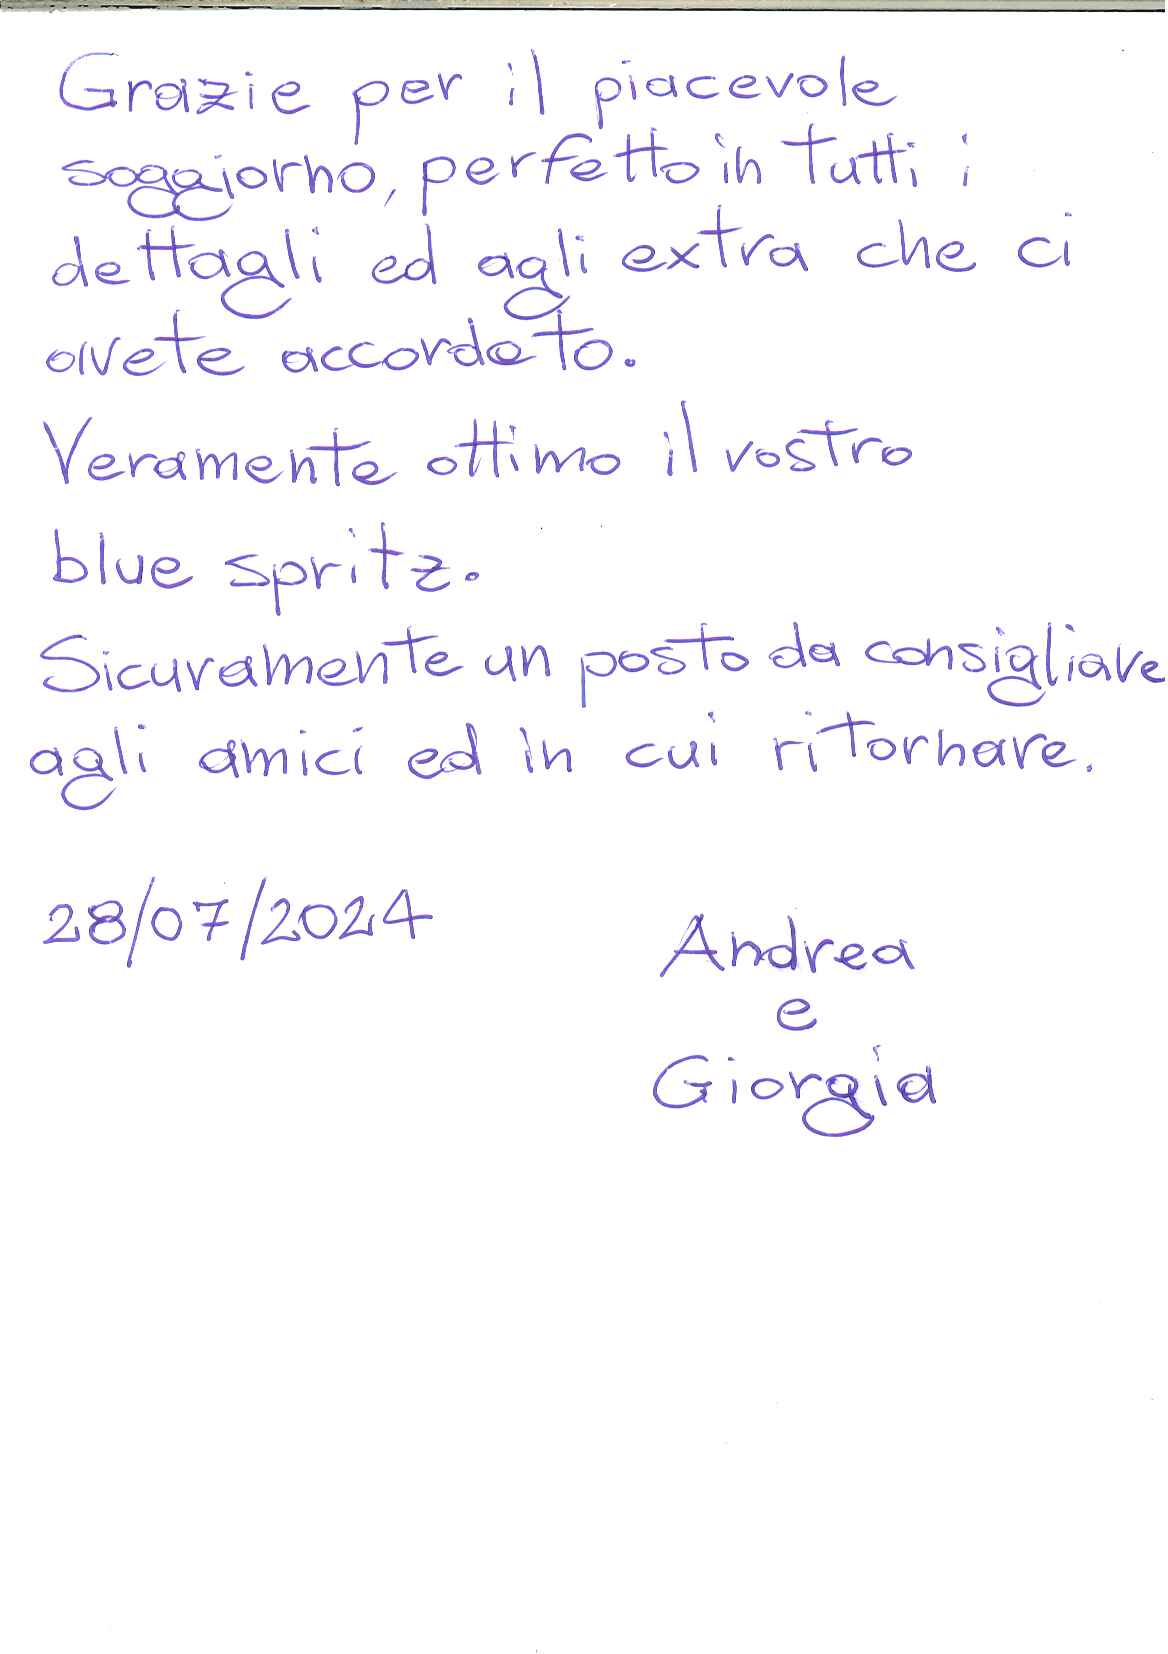 Grazie per il piacevole
soggiorno, perfetto in tutti i
dettagli ed agli extra che ci
avete accordato.
Veramente ottimo il vostro
blue spritz.
Sicuramente un posto da consigliare
agli amici ed in cui ritornare.
28/07/2024
Andrea
e
Giorgia